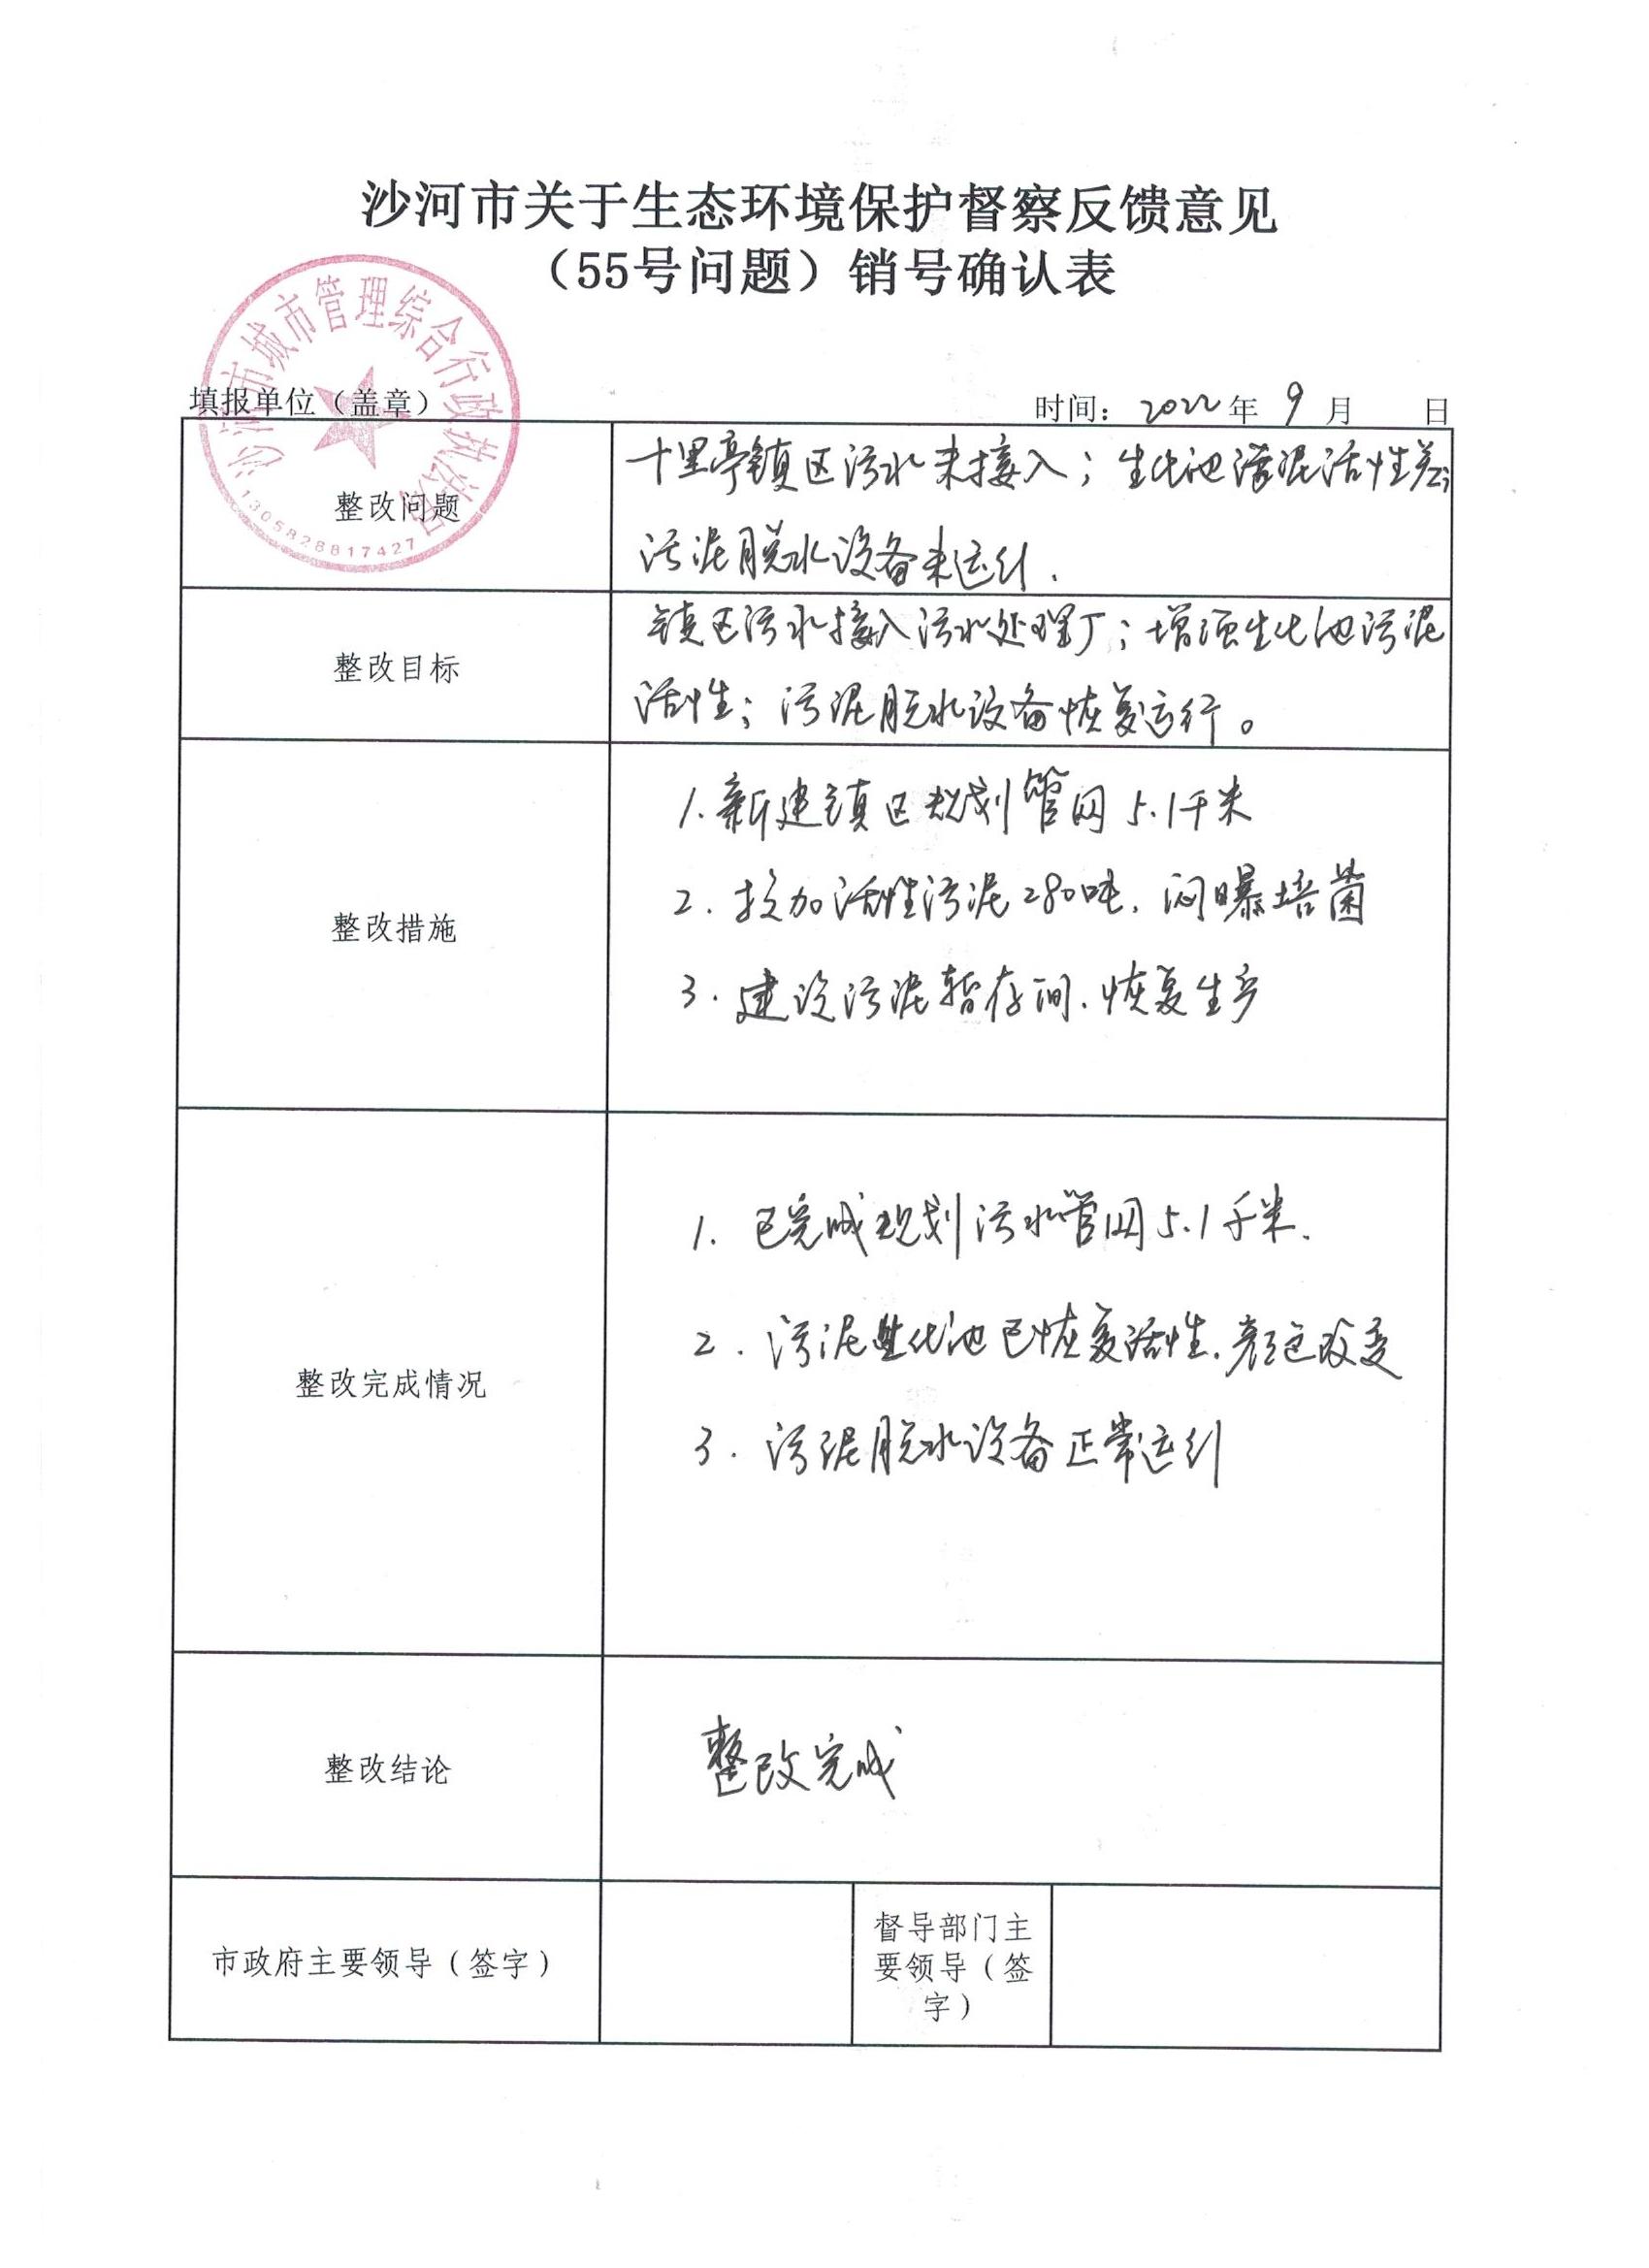 沙河市关于生态环境保护督察反馈意见
（55号问题）销号确认表
沙河市城市管理综合行政执法局
1305828817427
填报单位（盖章）
时间：2022年 9 月 日
整改问题
十里亭镇区污水未接入；生化池污泥活性差；
污泥脱水设备未运行.
整改目标
镇区污水接入污水处理厂；增强生化池污泥
活性；污泥脱水设备恢复运行。
整改措施
1.新建镇区规划管网5.1千米
2.投加活性污泥280吨,闷曝培菌
3.建设污泥暂存间,恢复生产
整改完成情况
1.已完成规划污水管网5.1千米.
2.污泥生化池已恢复活性,颜色改变
3.污泥脱水设备正常运行
整改结论
整改完成
市政府主要领导（签字）
督导部门主
要领导（签
字）